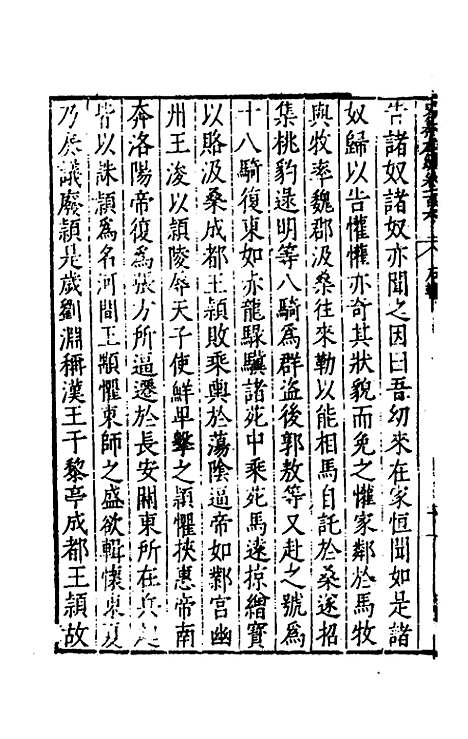 告諸奴諸奴亦聞之因曰吾幼來在家恒聞如是諸
奴歸以告懽懽亦奇其狀貌而免之懽家鄰於馬牧
與牧率魏郡汲桑往來勒以能相馬自託於桑遂招
集桃豹逯明等八騎爲群盜後郭敖等又赴之號爲
十八騎復東如赤龍騄驥諸苑中乘苑馬遠掠繒寶
以賂汲桑成都王頴敗乘輿於蕩陰逼帝如鄴宮幽
州王浚以頴陵辱天子使鮮卑擊之頴懼挾惠帝南
奔洛陽帝復爲張方所逼遷於長安關東所在兵起
皆以誅頴爲名河間王顒懼東師之盛欲輯懷東夏
乃奏議廢頴是歲劉淵稱漢王于黎亭成都王頴故